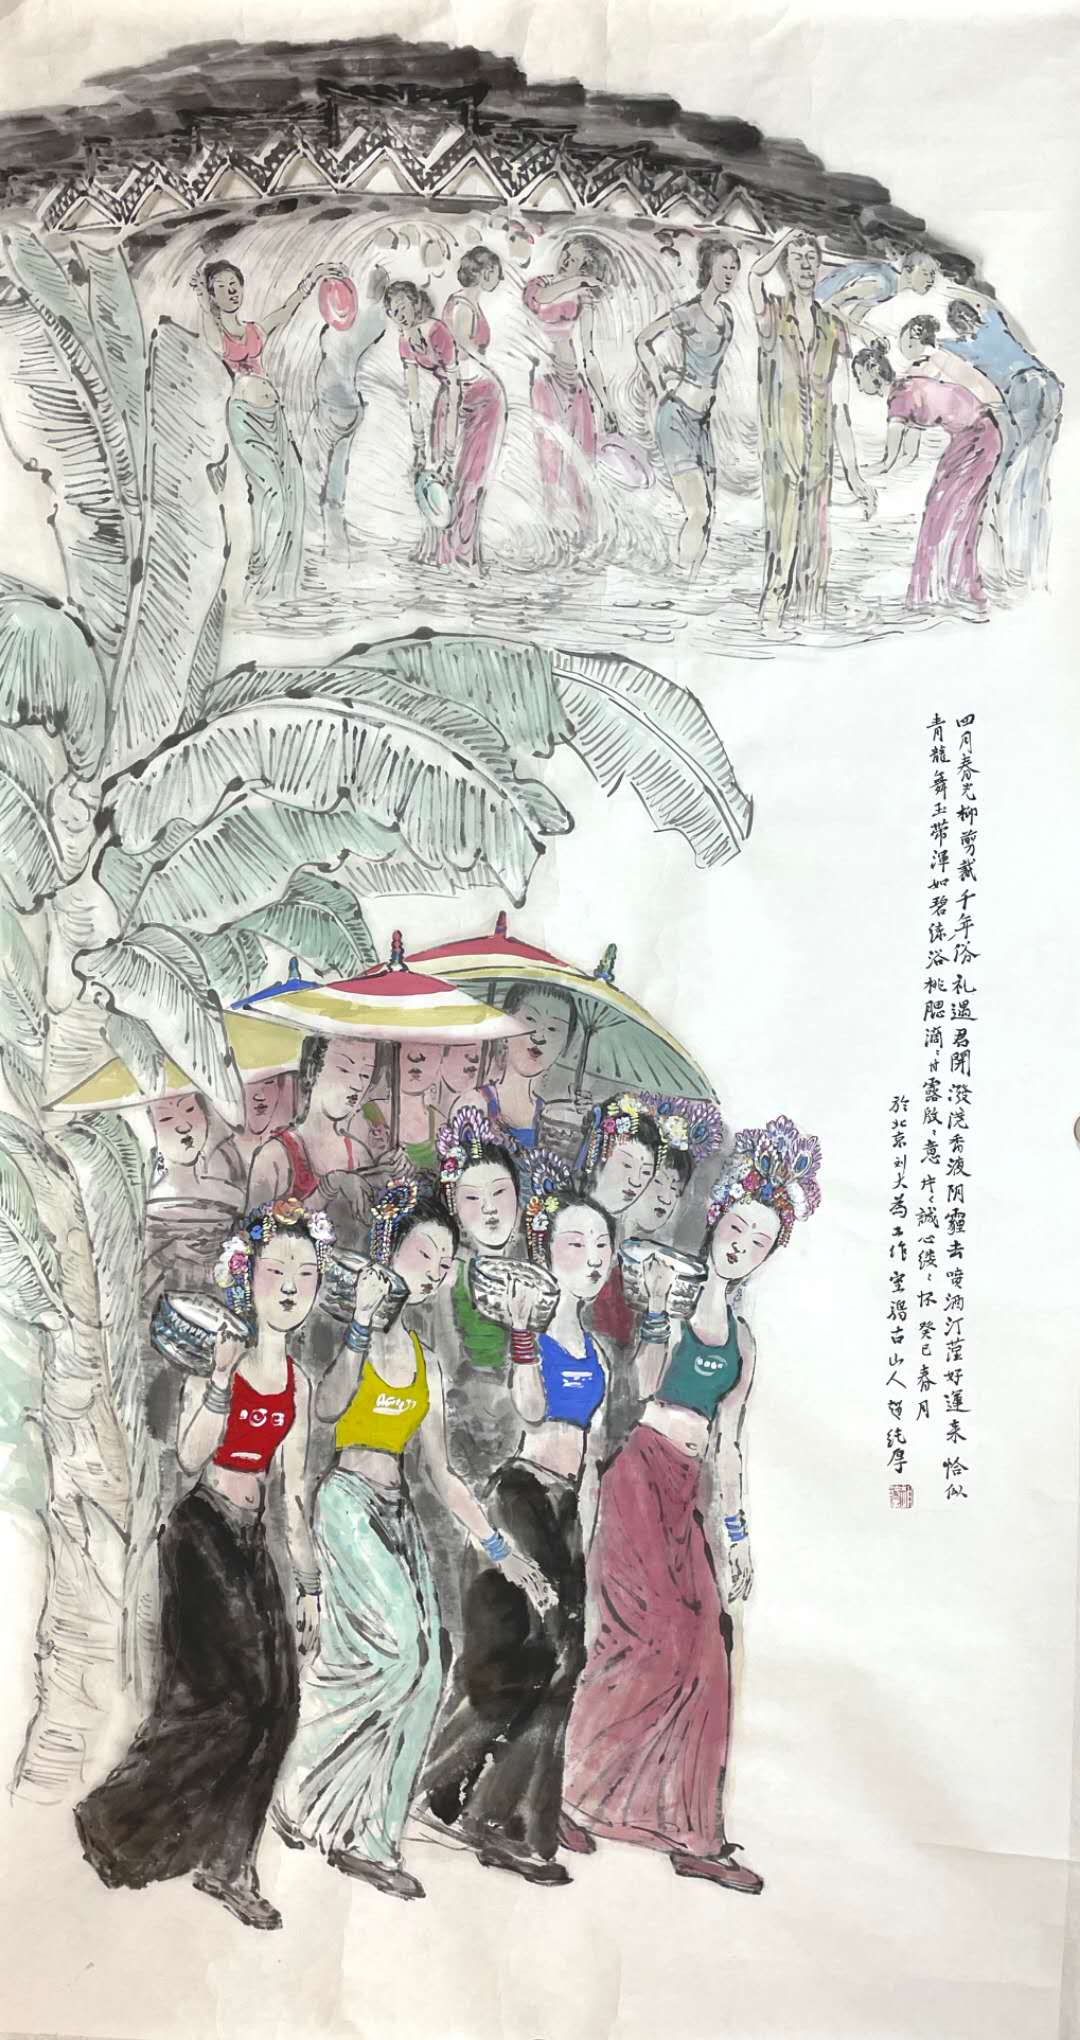 四月春光柳剪裁千年俗礼遇君開潑浣香液阴霾去喷洒汀滢好運来 恰似
青龍舞玉带渾如碧练浴桃腮滴〻甘露殷〻意片〻誠心缕〻怀 癸巳春月
於北京刘大为工作室古山人趙纯厚